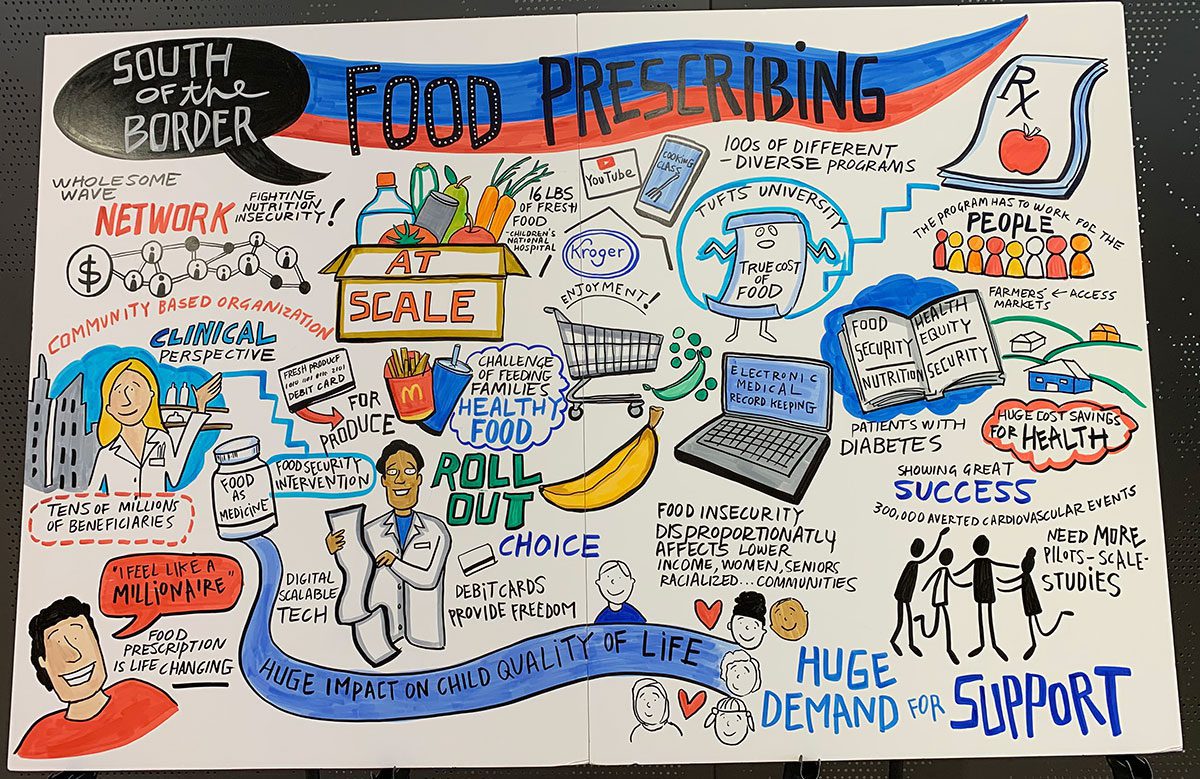 SOUTH
OF the
BORDER
FOOD PRESCRIBING
Rx
WHOLESOME
WAVE
NETWORK
FIGHTING
NUTRITION
INSECURITY!
$
COMMUNITY BASED ORGANIZATION
CLINICAL
PERSPECTIVE
AT
SCALE
16 LBS
OF FRESH
FOOD
-CHILDREN'S
NATIONAL
HOSPITAL
YouTube
COOKING
CLASS
Kroger
ENJOYMENT!
100S OF DIFFERENT
- DIVERSE PROGRAMS
TUFTS UNIVERSITY
TRUE COST
OF
FOOD
THE PROGRAM HAS TO WORK FOR THE
PEOPLE
FARMERS' ← ACCESS
MARKETS
FOOD
SECURITY
NUTRITION
HEALTH
EQUITY
SECURITY
FRESH PRODUCE
DEBIT CARD
FOR
PRODUCE
M
CHALLENGE
OF FEEDING
FAMILIES
HEALTHY
FOOD
ELECTRONIC
MEDICAL
RECORD KEEPING
PATIENTS WITH
DIABETES
HUGE COST SAVINGS
FOR HEALTH
SHOWING GREAT
SUCCESS
300,000 AVERTED CARDIOVASCULAR EVENTS
NEED MORE
PILOTS-SCALE-
STUDIES
TENS OF MILLIONS
OF BENEFICIARIES
FOOD
AS
MEDICINE
FOOD SECURITY
INTERVENTION
ROLL
OUT
CHOICE
DIGITAL
SCALABLE
TECH
DEBIT CARDS
PROVIDE FREEDOM
FOOD INSECURITY
DISPROPORTIONATLY
AFFECTS LOWER
INCOME, WOMEN, SENIORS
RACIALIZED... COMMUNITIES
"I FEEL LIKE A
MILLIONAIRE"
FOOD
PRESCRIPTION
IS LIFE CHANGING
HUGE IMPACT ON CHILD QUALITY OF LIFE
HUGE
DEMAND FOR SUPPORT